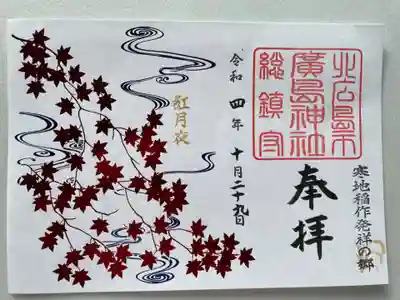 北広島市
廣島神社
総鎮守
奉拝
寒地稲作発祥の郷
令和四年十月二十九日
紅月夜